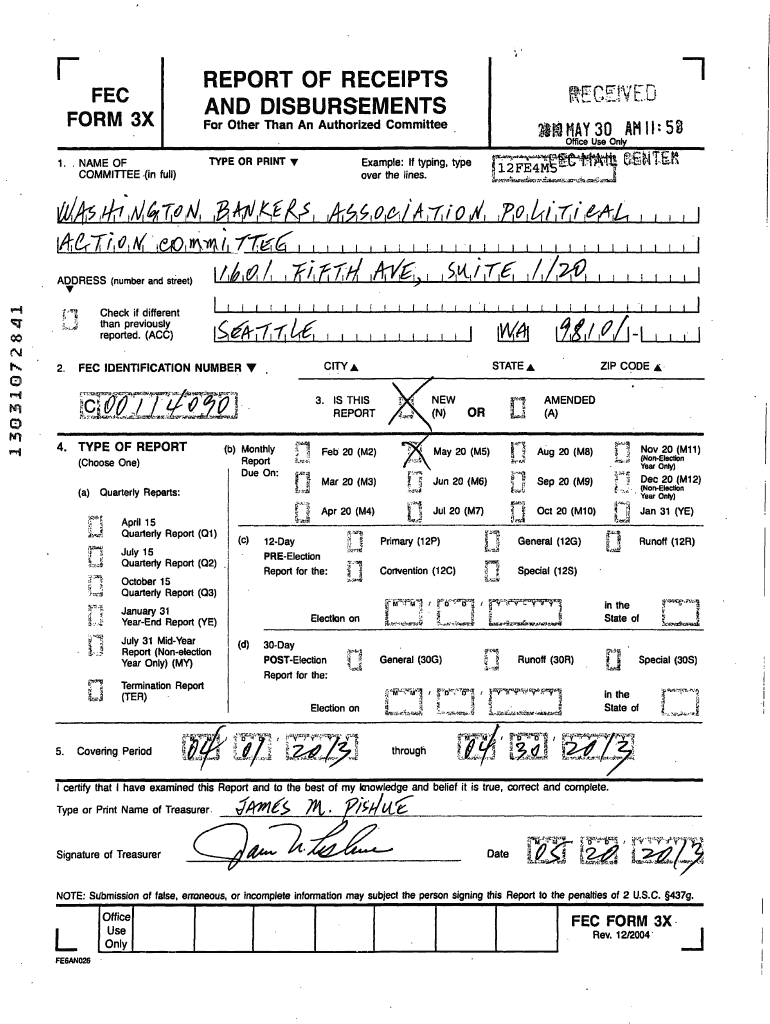 FEC
FORM 3X
REPORT OF RECEIPTS
AND DISBURSEMENTS
For Other Than An Authorized Committee
RECEIVED
MAY 30 AM 11:50
Office Use Only
FEC MAIL CENTER
1. NAME OF
COMMITTEE (in full)
TYPE OR PRINT ▼
Example: If typing, type
over the lines.
12FE4M5
WASHINGTON BANKERS ASSOCIATION POLITICAL
ACTION COMMITTEE
ADDRESS (number and street)
▼
1601 FIFTH AVE, SUITE 1120
Check if different
than previously
reported. (ACC)
SEATTLE WA 98101-
2. FEC IDENTIFICATION NUMBER ▼
CITY ▲ STATE ▲ ZIP CODE ▲
C 00114090
3. IS THIS
REPORT
X NEW
(N) OR
AMENDED
(A)
4. TYPE OF REPORT
(Choose One)
(a) Quarterly Reports:
April 15
Quarterly Report (Q1)
July 15
Quarterly Report (Q2)
October 15
Quarterly Report (Q3)
January 31
Year-End Report (YE)
July 31 Mid-Year
Report (Non-election
Year Only) (MY)
Termination Report
(TER)
(b) Monthly
Report
Due On:
Feb 20 (M2) X May 20 (M5) Aug 20 (M8) Nov 20 (M11)
(Non-Election
Year Only)
Mar 20 (M3) Jun 20 (M6) Sep 20 (M9) Dec 20 (M12)
(Non-Election
Year Only)
Apr 20 (M4) Jul 20 (M7) Oct 20 (M10) Jan 31 (YE)
(c) 12-Day
PRE-Election
Report for the:
Primary (12P) General (12G) Runoff (12R)
Convention (12C) Special (12S)
Election on
M M / D D / Y Y Y Y
in the
State of
(d) 30-Day
POST-Election
Report for the:
General (30G) Runoff (30R) Special (30S)
Election on
M M / D D /
in the
State of
5. Covering Period 04 / 01 / 2013 through 04 / 30 / 2013
I certify that I have examined this Report and to the best of my knowledge and belief it is true, correct and complete.
Type or Print Name of Treasurer JAMES M. PISHUE
Signature of Treasurer
Date 05 20 2013
NOTE: Submission of false, erroneous, or incomplete information may subject the person signing this Report to the penalties of 2 U.S.C. §437g.
Office
Use
Only
FEC FORM 3X
Rev. 12/2004
FE6AN026
13031072841